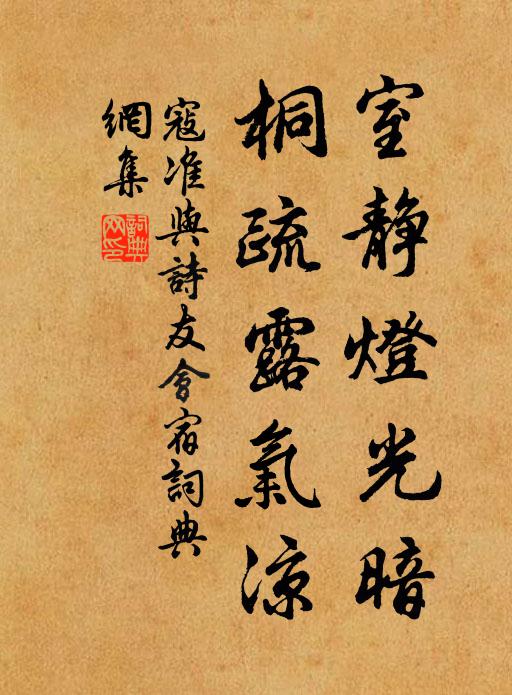 室靜燈光暗
桐疏露氣涼
寇准與詩友會宿詞典
網集
詞典
網印